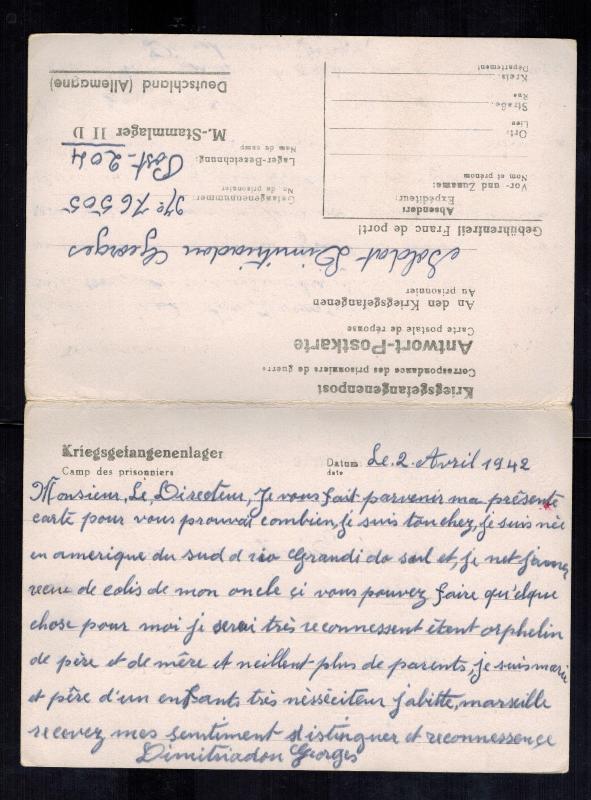 Kriegsgefangenenpost
Correspondance des prisonniers de guerre
Antwort-Postkarte
Carte postale de réponse
An den Kriegsgefangenen
Au prisonnier
Soldat Dimitriadon Georges
Gebührenfrei! Franc de port!
Absender:
Expéditeur:
Vor- und Zuname:
Nom et prénom
Ort:
Lieu
Straße:
Rue
Kreis:
Département
Gefangenennummer: No 76505
No du prisonnier
Lager-Bezeichnung: Post-204
Nom du camp
M.-Stammlager II D
Deutschland (Allemagne)
Kriegsgefangenenlager
Camp des prisonniers
Datum: Le 2. Avril 1942
date
Monsieur, Le, Directeur, Je vous fait parvenir ma présente
carte pour vous prouvat combien, je suis touchez, je suis née
en amerique du sud a rio Grandi do sul et, je net jamez
recue de colis de mon oncle çi vous pouvez faire qu'elque
chose pour moi je serai très reconnessent étent orphelin
de père et de mère et neillent plus de parents, je suis marie
et père d'un enfsants très nésséciteur j'abitte, marseille
recevez mes sentiment distinguer et reconnessence
Dimitriadon Georges